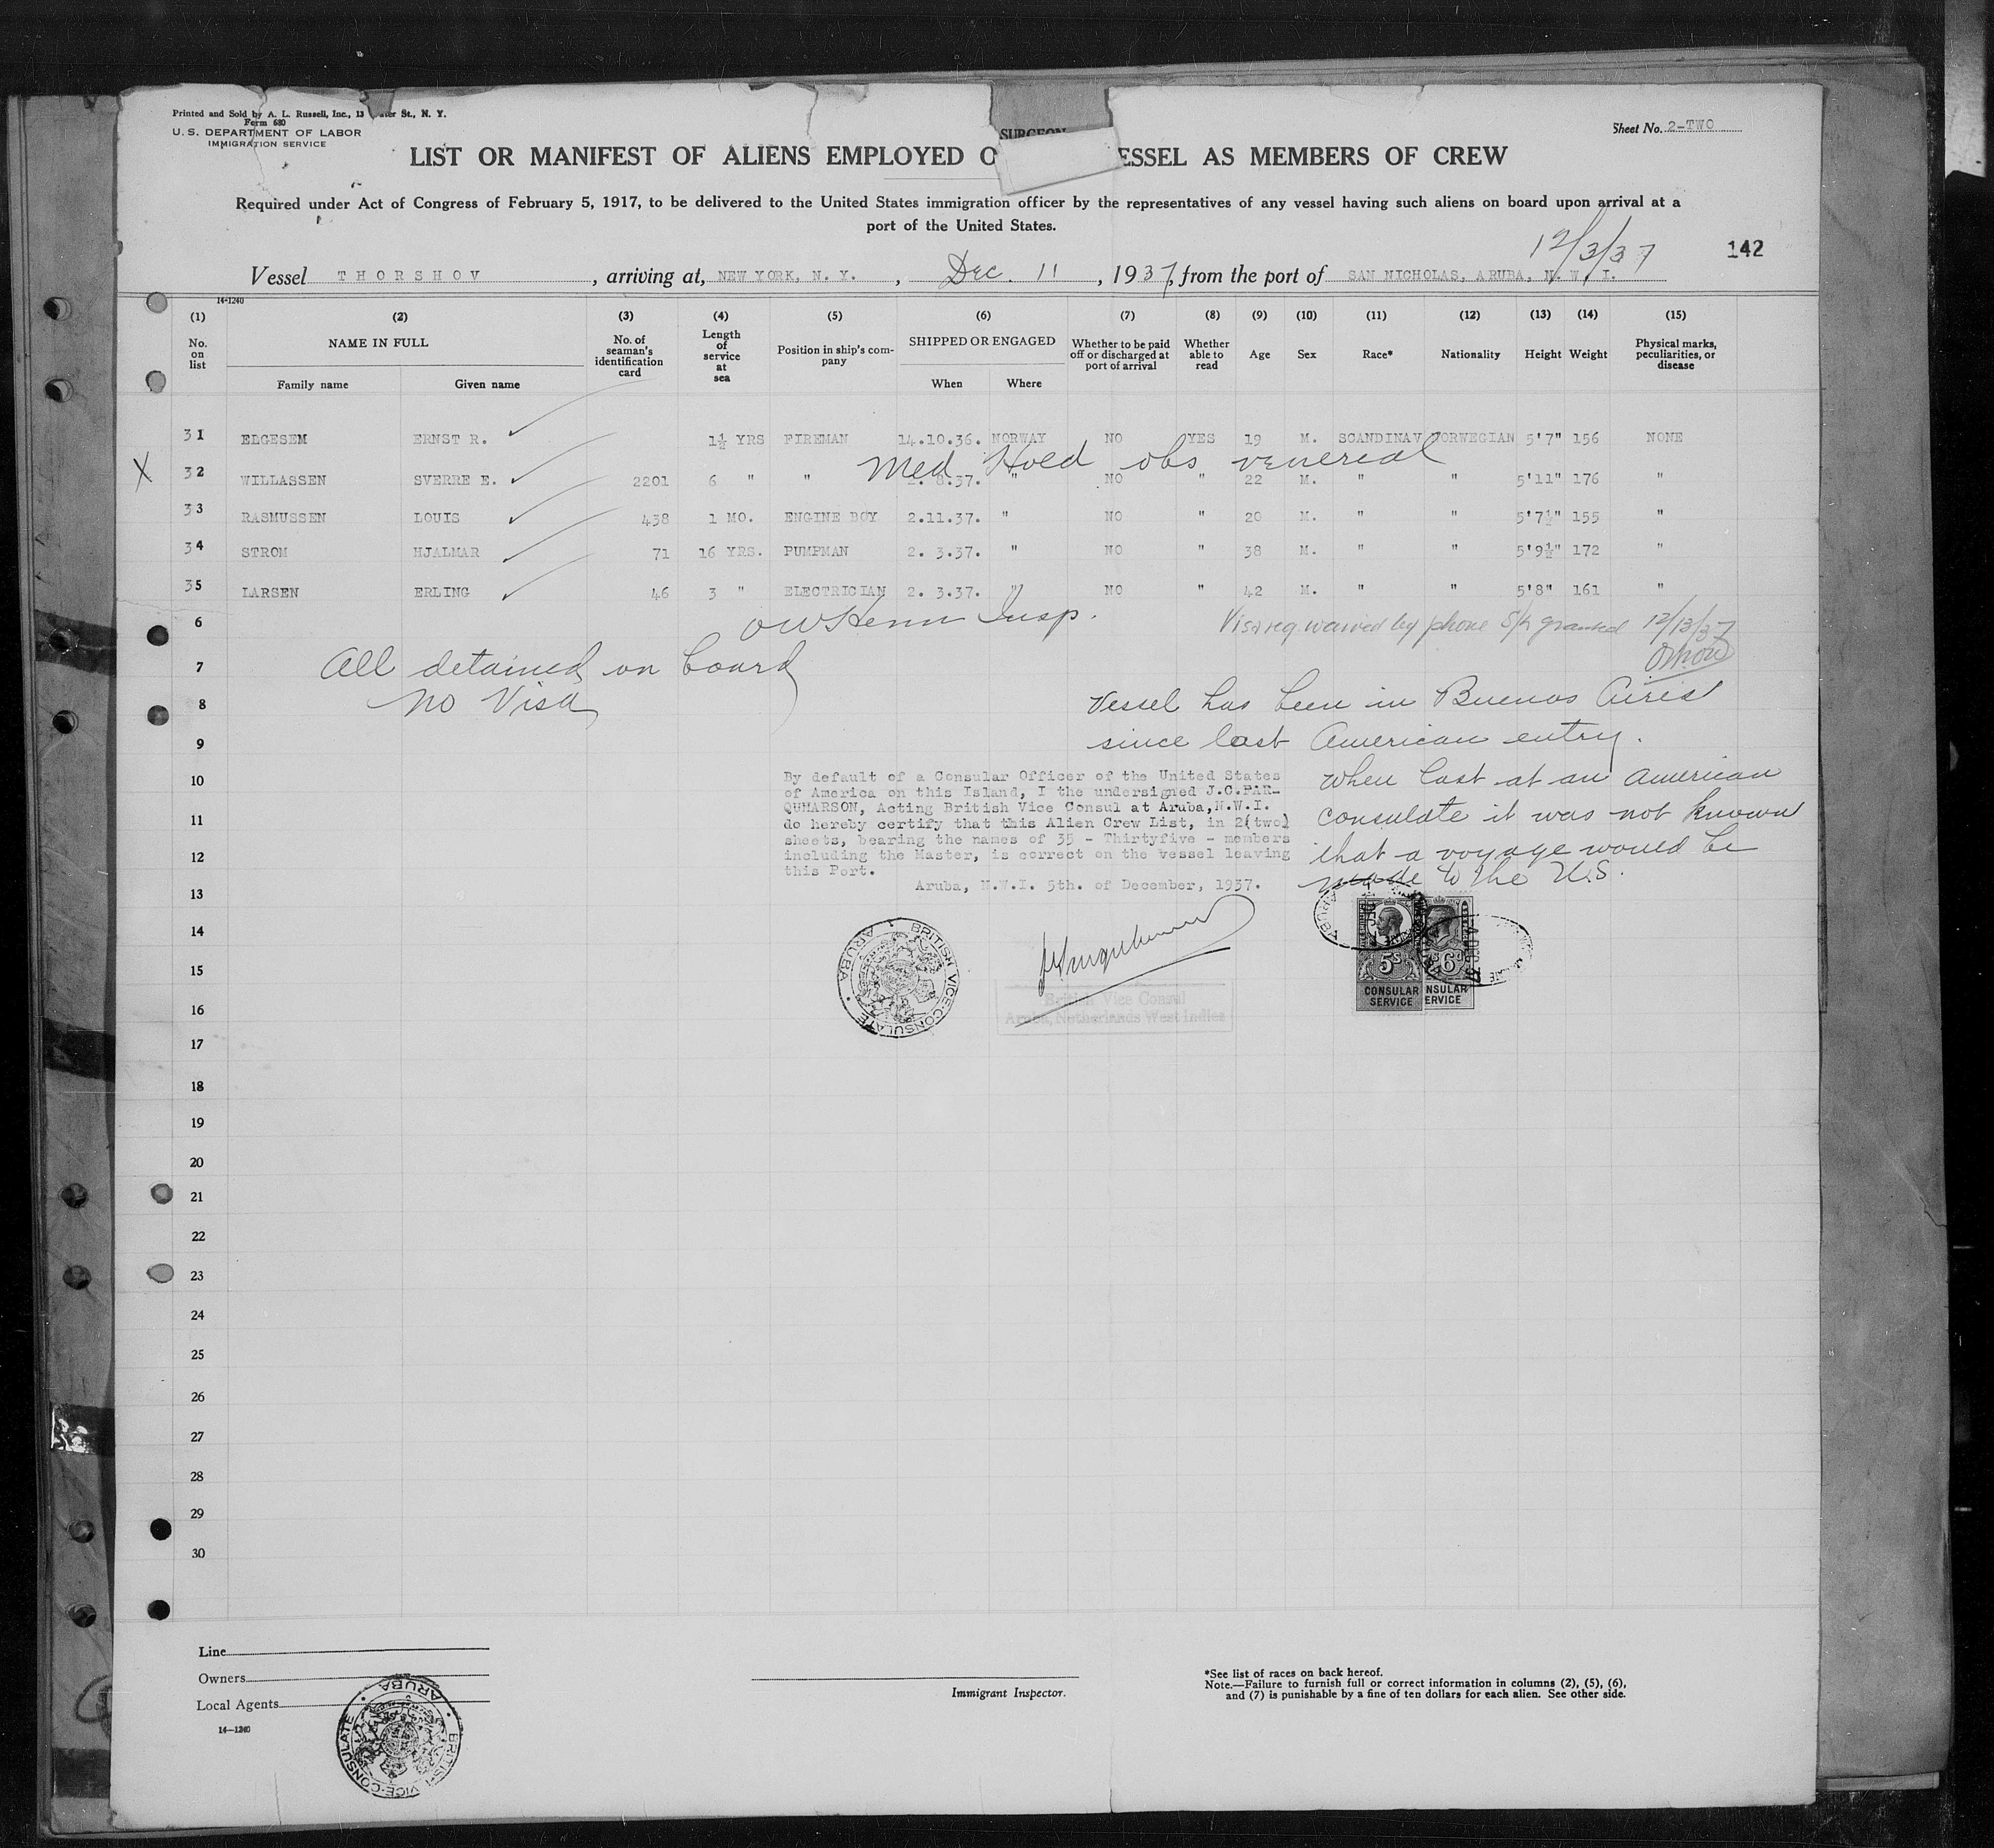 Printed and Sold by A. L. Russell, Inc., 13 Water St., N. Y.
Form 680
U. S. DEPARTMENT OF LABOR
IMMIGRATION SERVICE
SURGEON
Sheet No. 2-TWO
LIST OR MANIFEST OF ALIENS EMPLOYED O ESSEL AS MEMBERS OF CREW
Required under Act of Congress of February 5, 1917, to be delivered to the United States immigration officer by the representatives of any vessel having such aliens on board upon arrival at a
port of the United States.
12/3/37
142
Vessel THORSHOV, arriving at, NEW YORK, N. Y., Dec. 11, 1937, from the port of SAN NICHOLAS, ARUBA, N. W. I.
14-1240
(1) (2) (3) (4) (5) (6) (7) (8) (9) (10) (11) (12) (13) (14) (15)
No. on list NAME IN FULL Family name Given name No. of seaman's identification card Length of service at sea Position in ship's company SHIPPED OR ENGAGED When Where Whether to be paid off or discharged at port of arrival Whether able to read Age Sex Race* Nationality Height Weight Physical marks, peculiarities, or disease
31 ELGESEM ERNST R. 1½ YRS FIREMAN 14.10.36. NORWAY NO YES 19 M. SCANDINAV NORWEGIAN 5'7" 156 NONE
Med Hold obs venereal
X 32 WILLASSEN SVERRE E. 2201 6 " " 2. 8.37. " NO " 22 M. " " 5'11" 176 "
33 RASMUSSEN LOUIS 438 1 MO. ENGINE BOY 2.11.37. " NO " 20 M. " " 5'7½" 155 "
34 STROM HJALMAR 71 16 YRS. PUMPMAN 2. 3.37. " NO " 38 M. " " 5'9½" 172 "
35 LARSEN ERLING 46 3 " ELECTRICIAN 2. 3.37. " NO " 42 M. " " 5'8" 161 "
6
Insp.
Visa req. waived by phone S/L granted 12/13/37
7
All detained on board
No Visa
8
Vessel has been in Buenos Aires
9
since last American entry.
10
When last at an American
11
consulate it was not known
12
that a voyage would be
made to the U.S.
By default of a Consular Officer of the United States
of America on this Island, I the undersigned J.C.FAR-
QUHARSON, Acting British Vice Consul at Aruba,N.W.I.
do hereby certify that this Alien Crew List, in 2(two)
sheets, bearing the names of 35 - Thirtyfive - members
including the Master, is correct on the vessel leaving
this Port.
Aruba, N.W.I. 5th. of December, 1937.
13
14
15
16
17
18
19
20
21
22
23
24
25
26
27
28
29
30
BRITISH VICE-CONSULATE ARUBA
British Vice Consul
Aruba, Netherlands West Indies
5s
CONSULAR
SERVICE
6d
NSULAR
ERVICE
Line
Owners
Local Agents
14—1240
BRITISH VICE-CONSULATE ARUBA
Immigrant Inspector.
*See list of races on back hereof.
Note.—Failure to furnish full or correct information in columns (2), (5), (6),
and (7) is punishable by a fine of ten dollars for each alien. See other side.